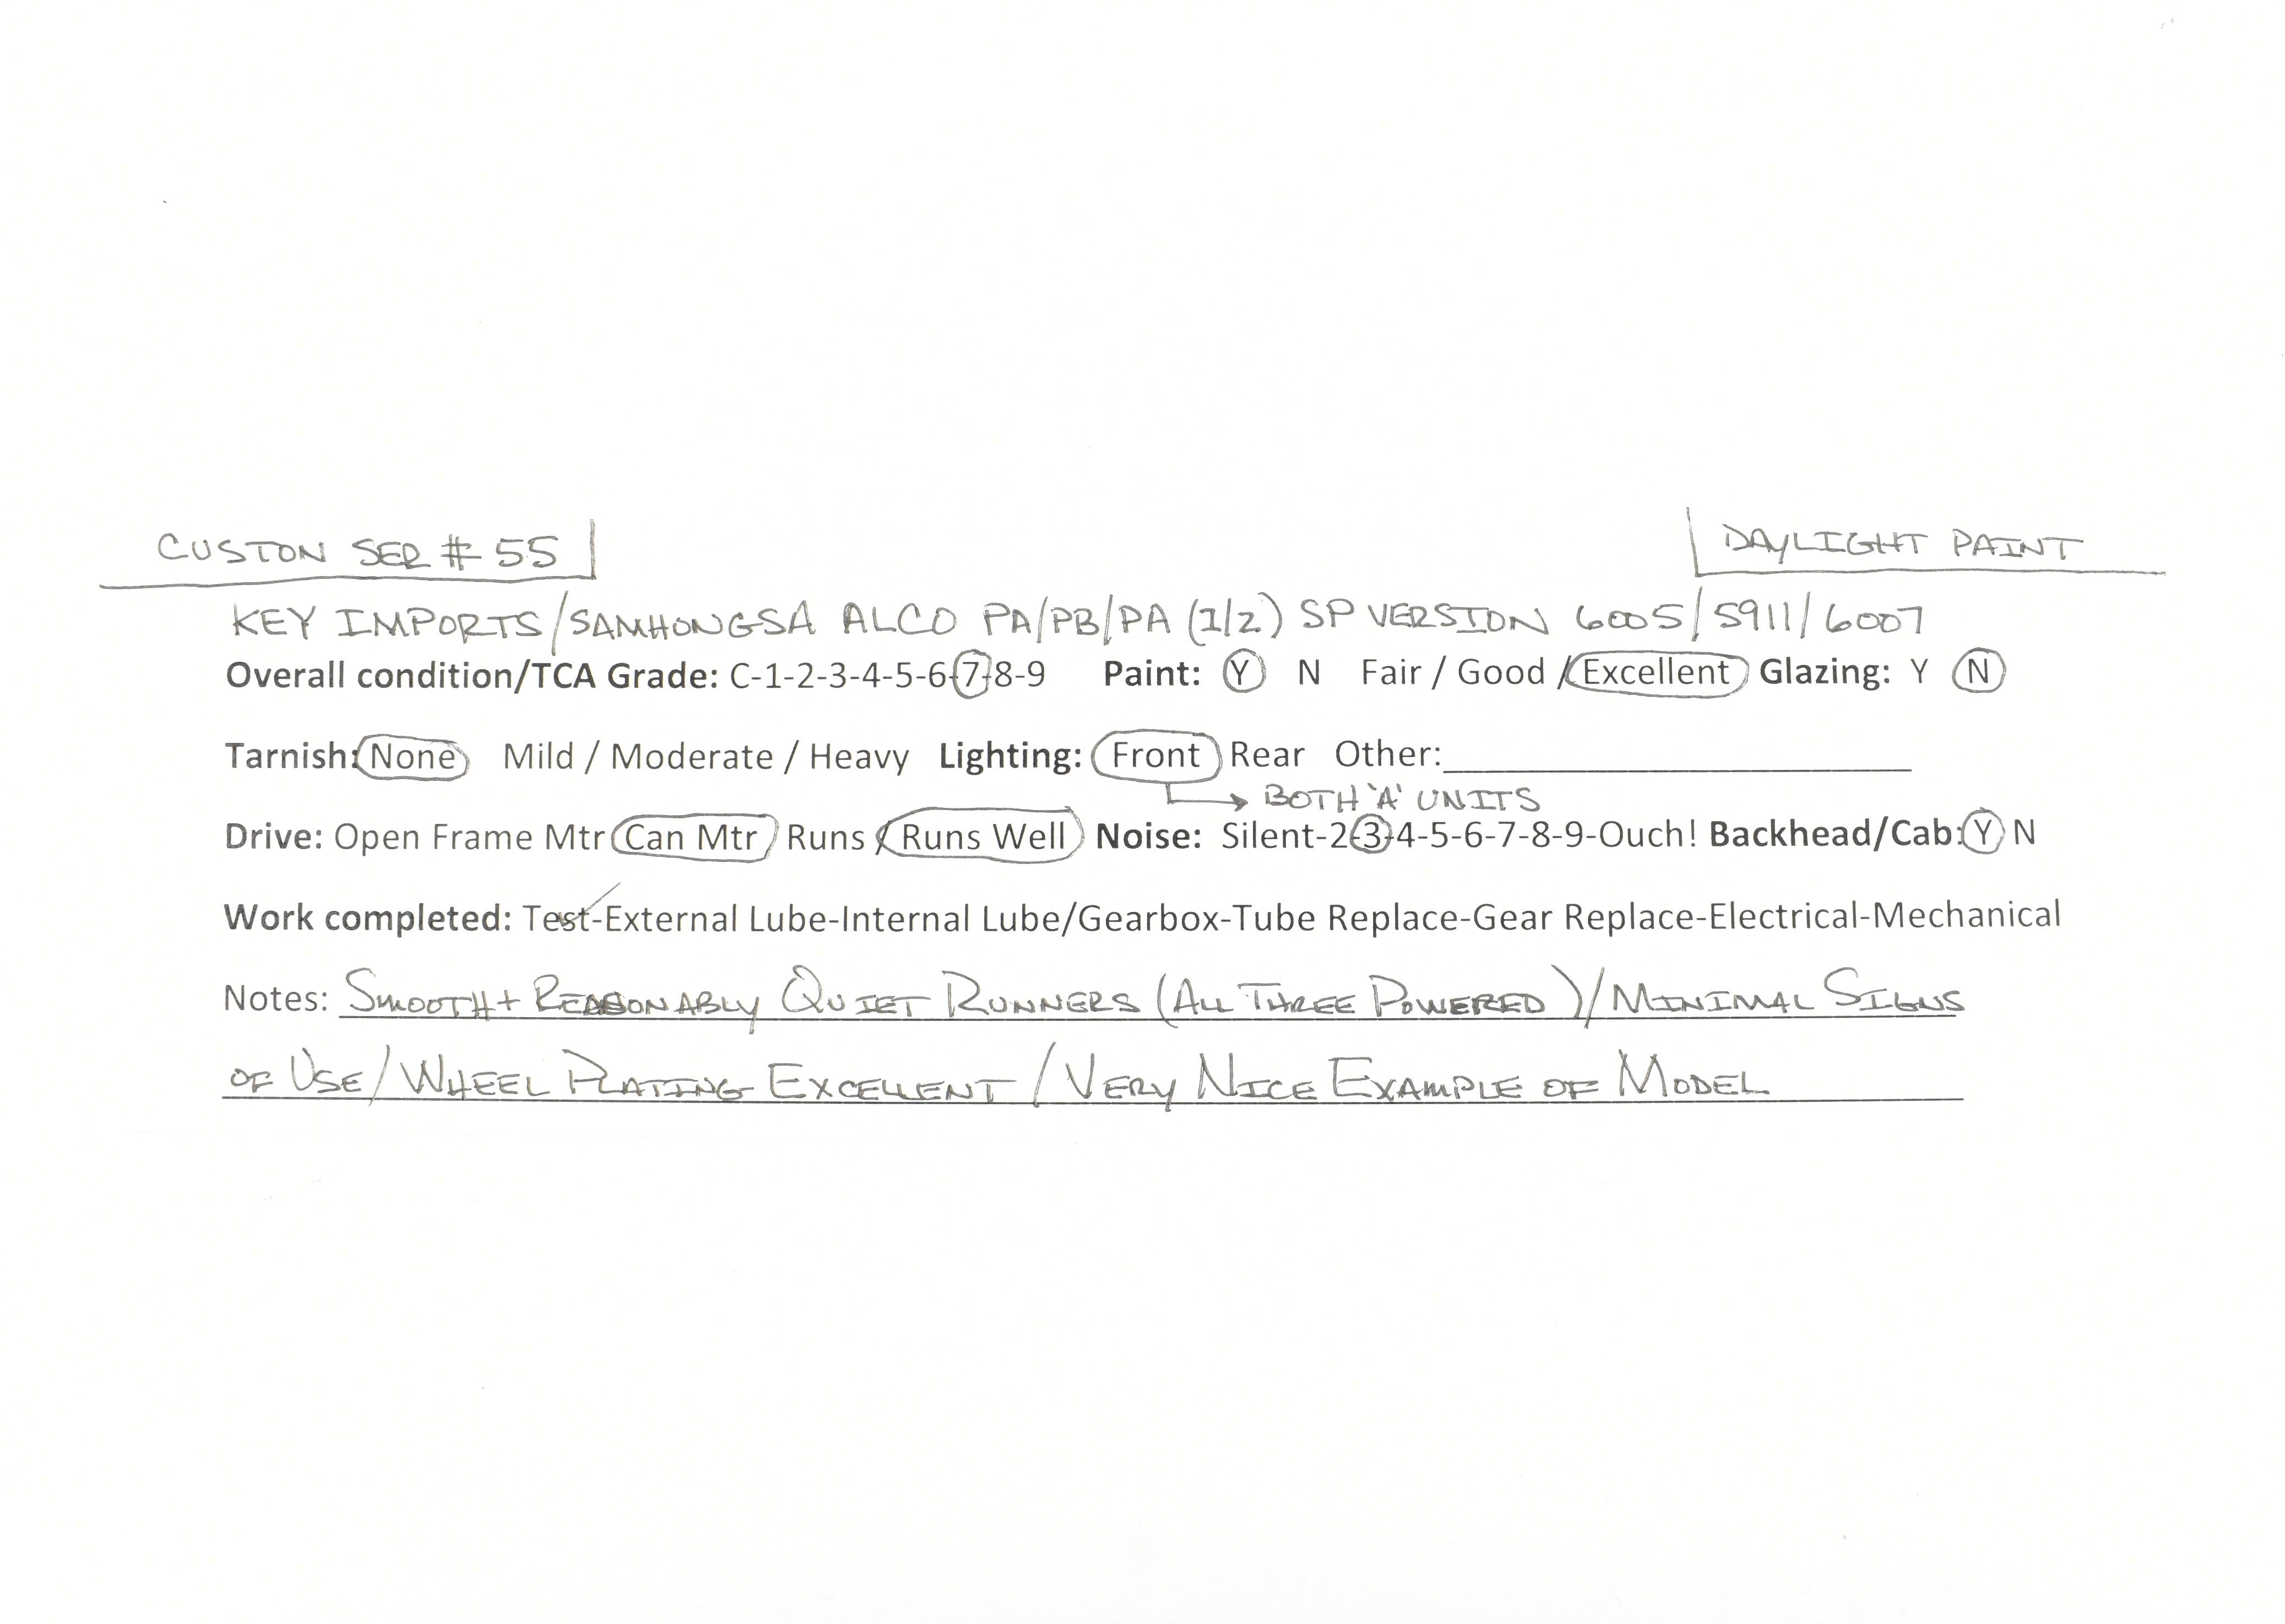 CUSTON SER # 55
DAYLIGHT PAINT
KEY IMPORTS/SAMHONGSA ALCO PA/PB/PA (1/2) SP VERSION 6005/5911/6007
Overall condition/TCA Grade: C-1-2-3-4-5-6-7-8-9 Paint: Y N Fair / Good / Excellent Glazing: Y N
Tarnish: None Mild / Moderate / Heavy Lighting: Front Rear Other:
BOTH 'A' UNITS
Drive: Open Frame Mtr Can Mtr Runs / Runs Well Noise: Silent-2-3-4-5-6-7-8-9-Ouch! Backhead/Cab: Y N
Work completed: Test-External Lube-Internal Lube/Gearbox-Tube Replace-Gear Replace-Electrical-Mechanical
Notes: SMOOTH + REASONABLY QUIET RUNNERS (ALL THREE POWERED)/MINIMAL SIGNS
OF USE/WHEEL PLATING EXCELLENT/VERY NICE EXAMPLE OF MODEL